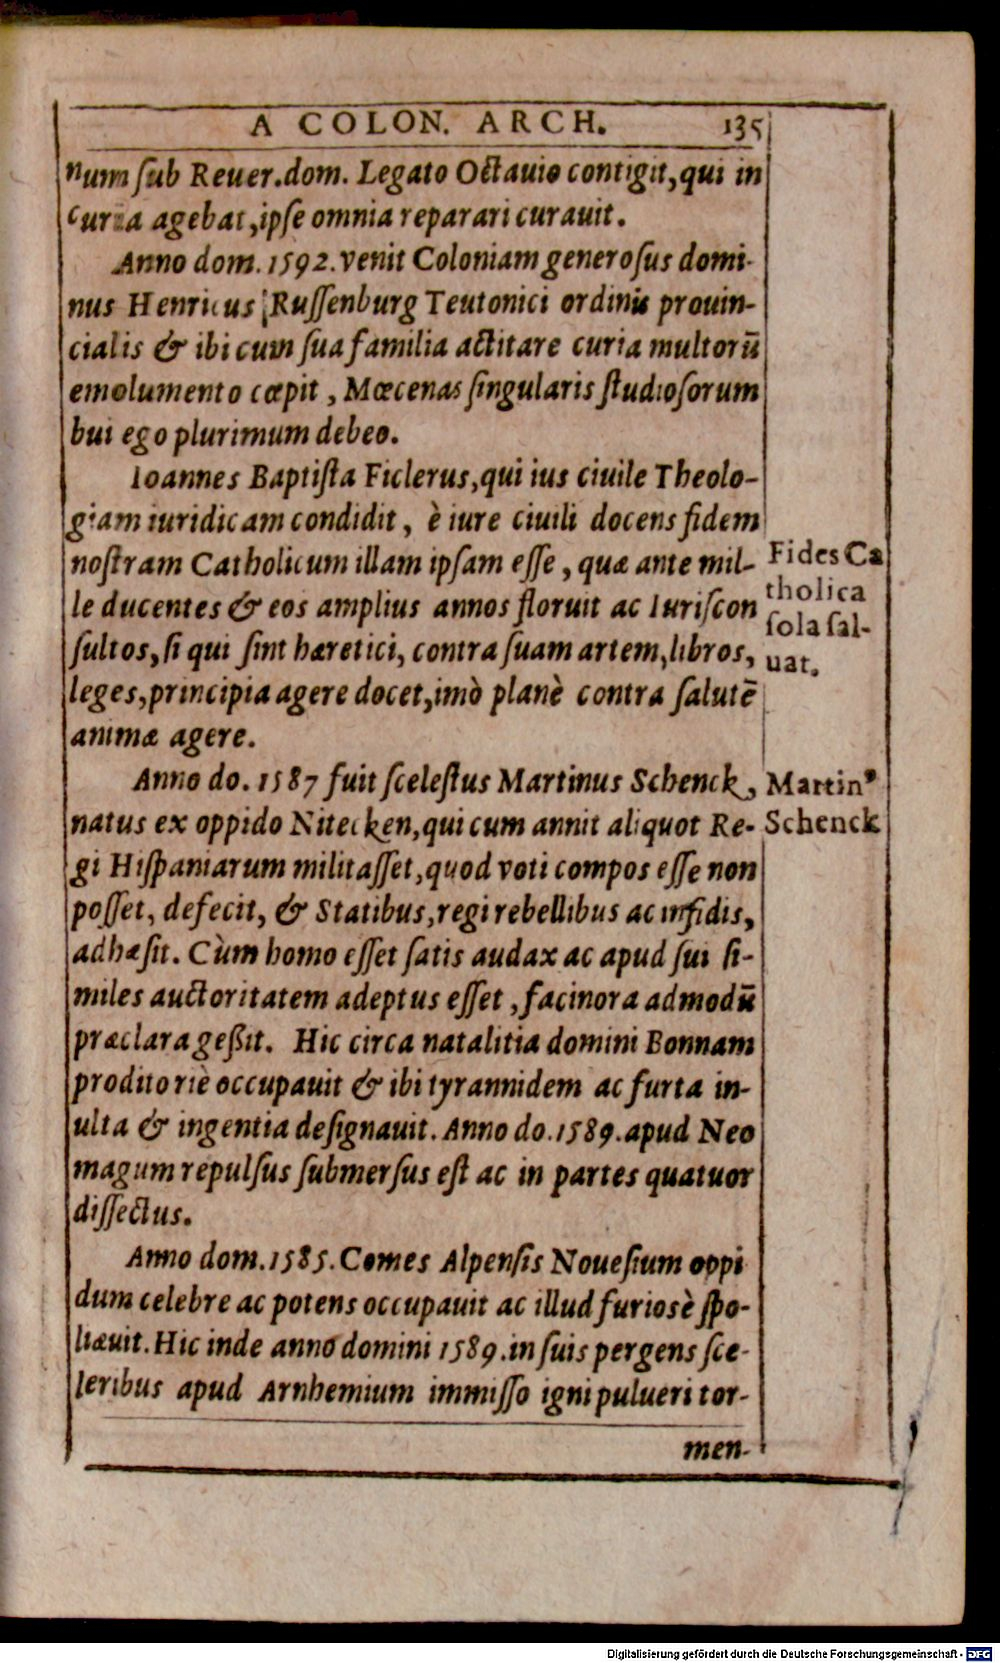 A COLON. ARCH. 135
num ſub Reuer. dom. Legato Octauio contigit, qui in
curia agebat, ipſe omnia reparari curauit.
Anno dom. 1592. venit Coloniam generoſus domi-
nus Henricus Ruſſenburg Teutonici ordinis prouin-
cialis & ibi cum ſua familia actitare curia multorū
emolumento cœpit, Mœcenas ſingularis ſtudioſorum
bui ego plurimum debeo.
Ioannes Baptiſta Ficlerus, qui ius ciuile Theolo-
giam iuridicam condidit, è iure ciuili docens fidem
noſtram Catholicum illam ipſam eſſe, quæ ante mil-
le ducentes & eos amplius annos floruit ac Iuriſcon
ſultos, ſi qui ſint hæretici, contra ſuam artem, libros,
leges, principia agere docet, imò planè contra ſalutē
animæ agere.
Fides Ca
tholica
ſola ſal-
uat.
Anno do. 1587 fuit ſceleſtus Martinus Schenck,
natus ex oppido Nitecken, qui cum annit aliquot Re-
gi Hiſpaniarum militaſſet, quod voti compos eſſe non
poſſet, defecit, & Statibus, regi rebellibus ac infidis,
adhæſit. Cùm homo eſſet ſatis audax ac apud ſui ſi-
miles auctoritatem adeptus eſſet, facinora admodū
præclara geßit. Hic circa natalitia domini Bonnam
proditoriè occupauit & ibi tyrannidem ac furta in-
ulta & ingentia deſignauit. Anno do. 1589. apud Neo
magum repulſus ſubmerſus eſt ac in partes quatuor
diſſectus.
Martinꝰ
Schenck
Anno dom. 1585. Comes Alpenſis Noueſium oppi
dum celebre ac potens occupauit ac illud furiosè ſpo-
liauit. Hic inde anno domini 1589. in ſuis pergens ſce-
leribus apud Arnhemium immiſſo igni pulueri tor-
men-
Digitalisierung gefördert durch die Deutsche Forschungsgemeinschaft - DFG